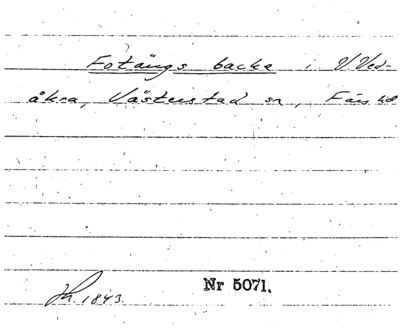 Fotängs backe i V. Ved-
åkra, Västerstad sn, Färs hd
1843.
Nr 5071.